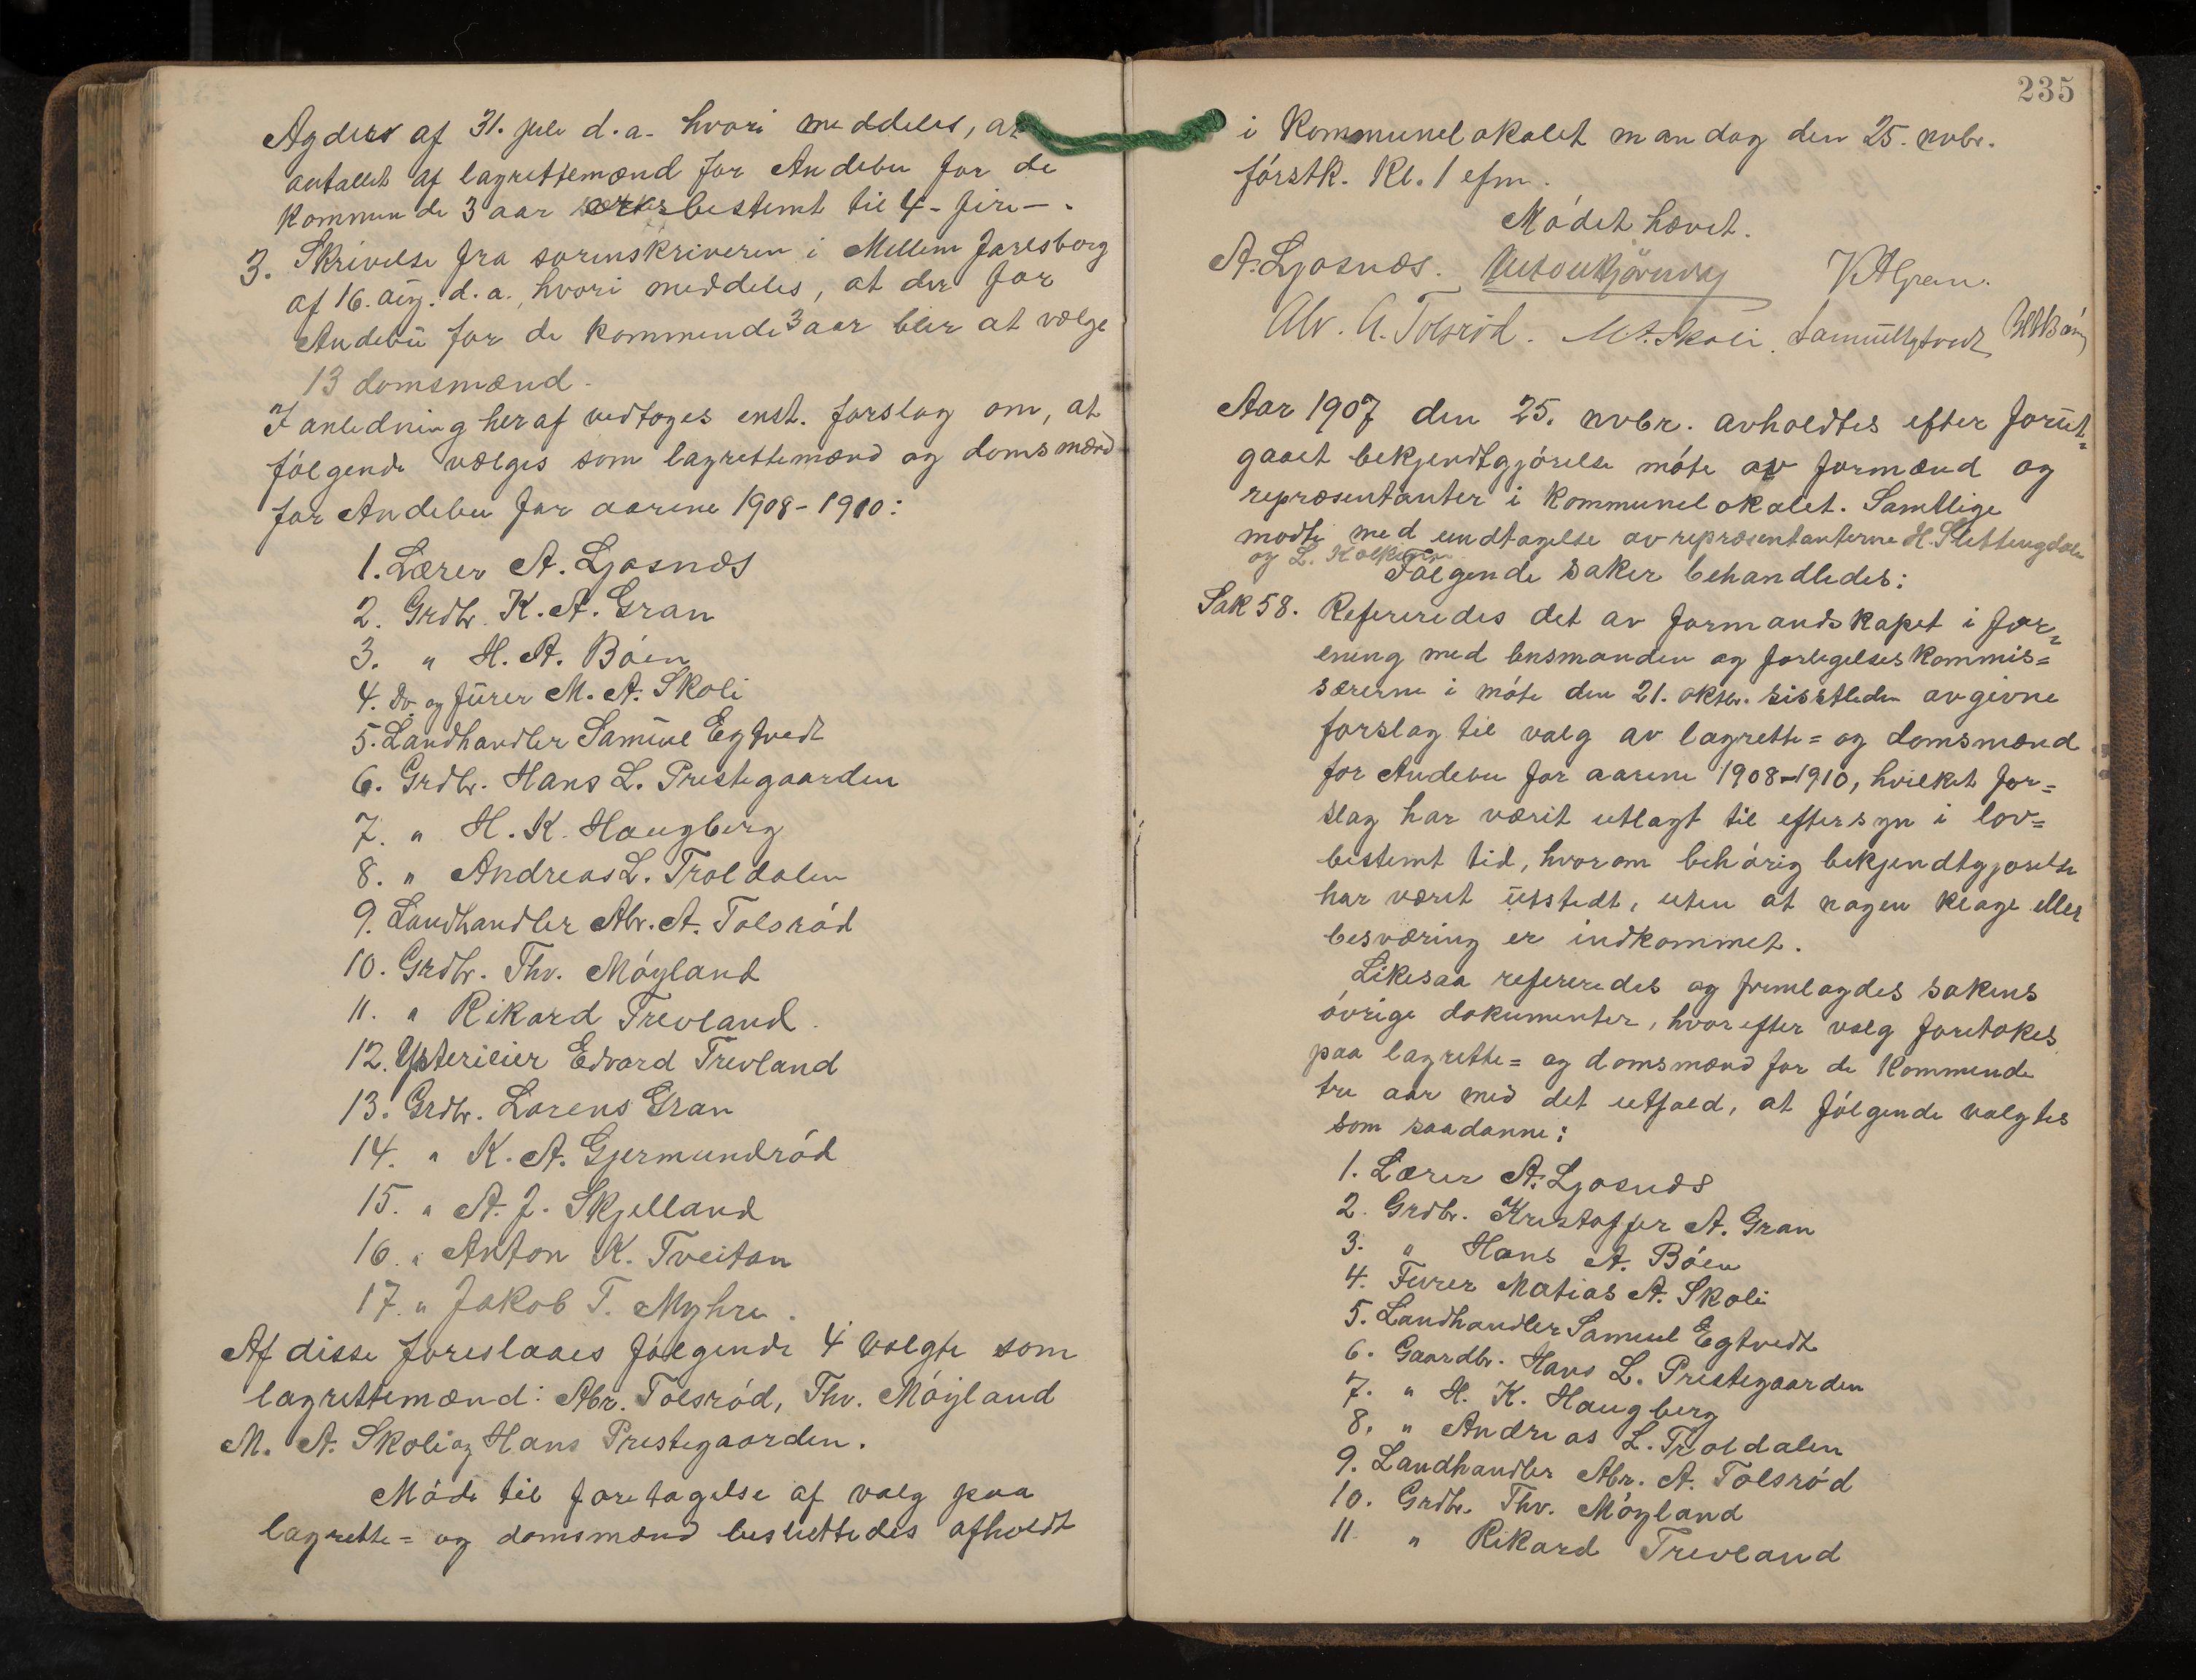 Agders af 31. juli d.a. hvori meddeles, at
antallet af lagrettemænd for Andebu for de
kommende 3 aar bestemt til 4 - fire - .
3. Skrivelse fra sorenskriveren i Mellem Jarlsberg
af 16. aug. d.a., hvori meddeles, at der for
Andebu for de kommende 3 aar blir at vælge
13 domsmænd.
I anledning heraf vedtoges enst. forslag om, at
følgende vælges som lagrettemænd og domsmænd
for Andebu for aarene 1908-1910:
1. Lærer A. Ljosnæs
2. Grdbr. K. A. Gran
3. " H. A. Bøen
4. do og furer M. A. Skoli
5. Landhandler Samuel Egtvedt
6. Grdbr. Hans L. Prestegaarden
7. " H. K. Haugberg
8. " Andreas L. Troldalen
9. Landhandler Abr. A. Tolsrød
10. Grdbr. Thv. Møyland
11. " Rikard Trevland
12. Ysterieier Edvard Trevland
13. Grdbr. Lorens Gran
14. " K. A. Gjermundrød
15. " A. J. Skjelland
16. " Anton K. Tveitan
17. " Jakob T. Myhre.
Af disse foreslaaes følgende 4 valgte som
lagrettemænd: Abr. Tolsrød, Thv. Møyland
M. A. Skoli og Hans Prestegaarden.
Møde til foretagelse af valg paa
lagrette= og domsmænd besluttedes afholdt
235
i kommunelokalet mandag den 25. nvbr.
førstk. kl. 1 efm.
Mødet hævet.
A. Ljosnæs. K A Gran.
Abr. A. Tolsrød. M. A. Skoli. Samuel Egtvedt H A Bøen
Aar 1907 den 25. nvbr. avholdtes efter forut=
gaaet bekjendtgjørelse møte av formænd og
repræsentanter i kommunelokalet. Samtlige
mødte med undtagelse av repræsentanterne H. Slettingdalen
og L.
Følgende saker behandledes:
Sak 58. Refereredes det av formandskapet i for=
ening med lensmanden og forligelseskommis=
særerne i møte den 21. oktbr. sisstleden avgivne
forslag til valg av lagrette= og domsmænd
for Andebu for aarene 1908-1910, hvilket for=
slag har værit utlagt til eftersyn i lov=
bestemt tid, hvorom behørig bekjendtgjørelse
har været utstedt, uten at nogen klage eller
besværing er indkommet.
Likesaa refereredes og fremlagdes sakens
øvrige dokumenter, hvorefter valg foretokes
paa lagrette= og domsmænd for de kommende
tre aar med det utfald, at følgende valgtes
som saadanne:
1. Lærer A. Ljosnæs
2. Grdbr. Kristoffer A. Gran
3. " Hans A. Bøen
4. Furer Matias A. Skoli
5. Landhandler Samuel Egtvedt
6. Gaardbr. Hans L. Prestegaarden
7. " H. K. Haugberg
8. " Andreas L. Troldalen
9. Landhandler Abr. A. Tolsrød
10. Grdbr. Thv. Møyland
11. " Rikard Trevland